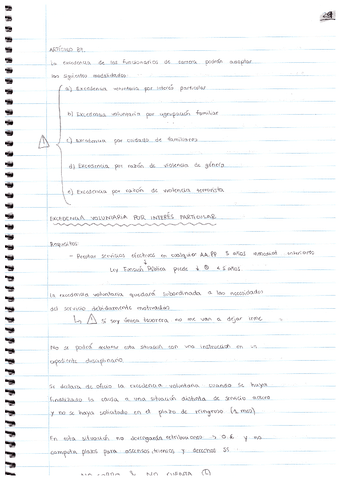 ARTÍCULO 89.
La excedencia de los funcionarios de carrera podrán adoptar
las siguientes modalidades:
a) Excedencia voluntaria por interés particular
b) Excedencia voluntaria por agrupación familiar
c) Excedencia por cuidado de familiares
d) Excedencia por razón de violencia de género
e) Excedencia por razón de violencia terrorista
EXCEDENCIA VOLUNTARIA POR INTERÉS PARTICULAR
Requisitos
- Prestar servicios efectivos en cualquier AA.PP 5 años anteriores
Ley Función Pública puede ↓ 5 años
La excedencia voluntaria quedará subordinada a las necesidades
del servicio debidamente motivadas
Si soy única no me van a dejar irme
No se podrá declarar esta situación con una instrucción en
expediente disciplinario
Se declara de oficio la excedencia voluntaria cuando se haya
finalizado la causa a una situación distinta de servicio activo
y no se haya solicitado en el plazo de reingreso
En esta situación no devengarán retribuciones → 0 € y no
computa plazo para ascensos, trienios y derechos SS